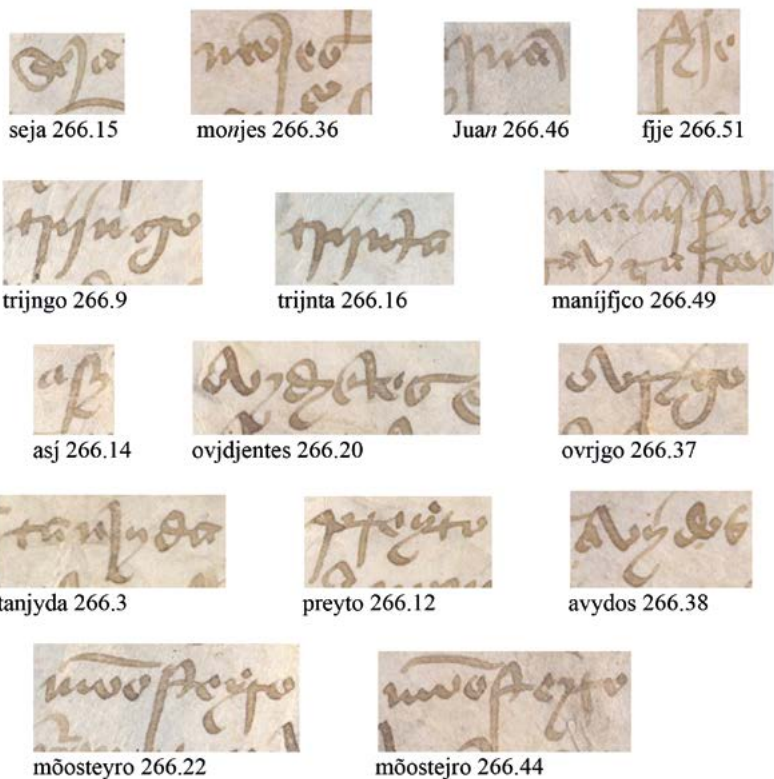 seja 266.15 monjes 266.36 Juan 266.46 fjje 266.51
trijngo 266.9 trijnta 266.16 maníjfjco 266.49
asj 266.14 ovjdjentes 266.20 ovrjgo 266.37
tanjyda 266.3 preyto 266.12 avydos 266.38
mõosteyro 266.22 mõostejro 266.44